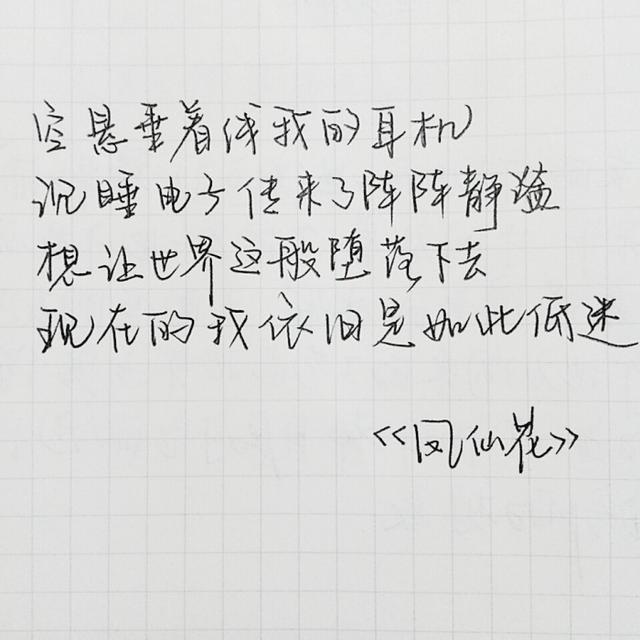 空悬垂着线我的耳机
沉睡电子传来了阵阵静谧
想让世界这般堕落下去
现在的我依旧是如此低迷
<<凤仙花>>